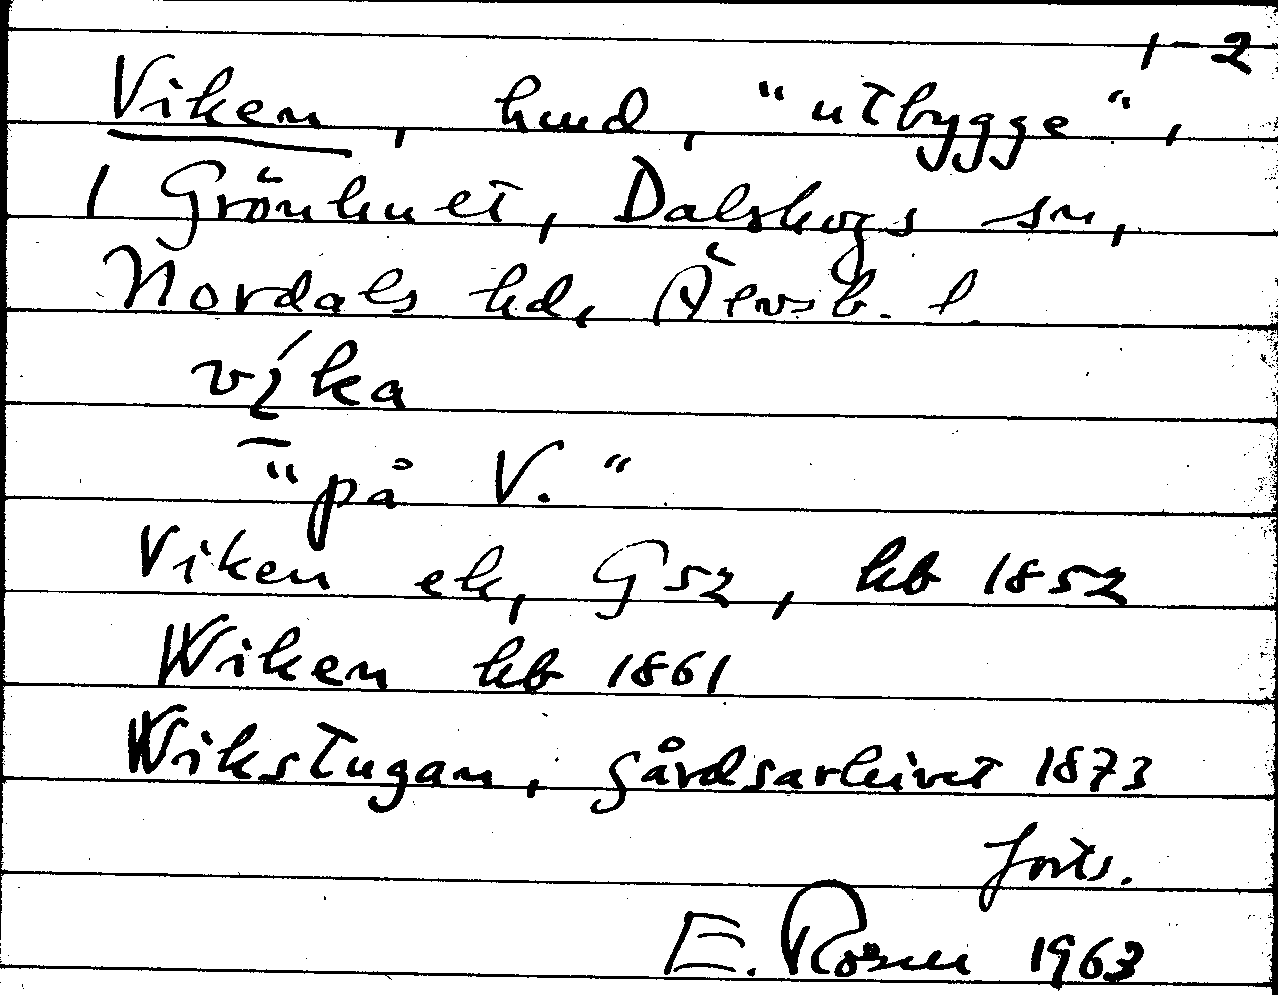 1-2
Viken, hmd, "utbygge",
1 Grönhult, Dalskogs sn,
Nordals hd, Älvsb. l.
ví̱ka
"på V."
Viken ek, G 52, kb 1852
Wiken kb 1861
Wikstugan, gårdsarkivet 1873
forts.
E. Rosell 1963